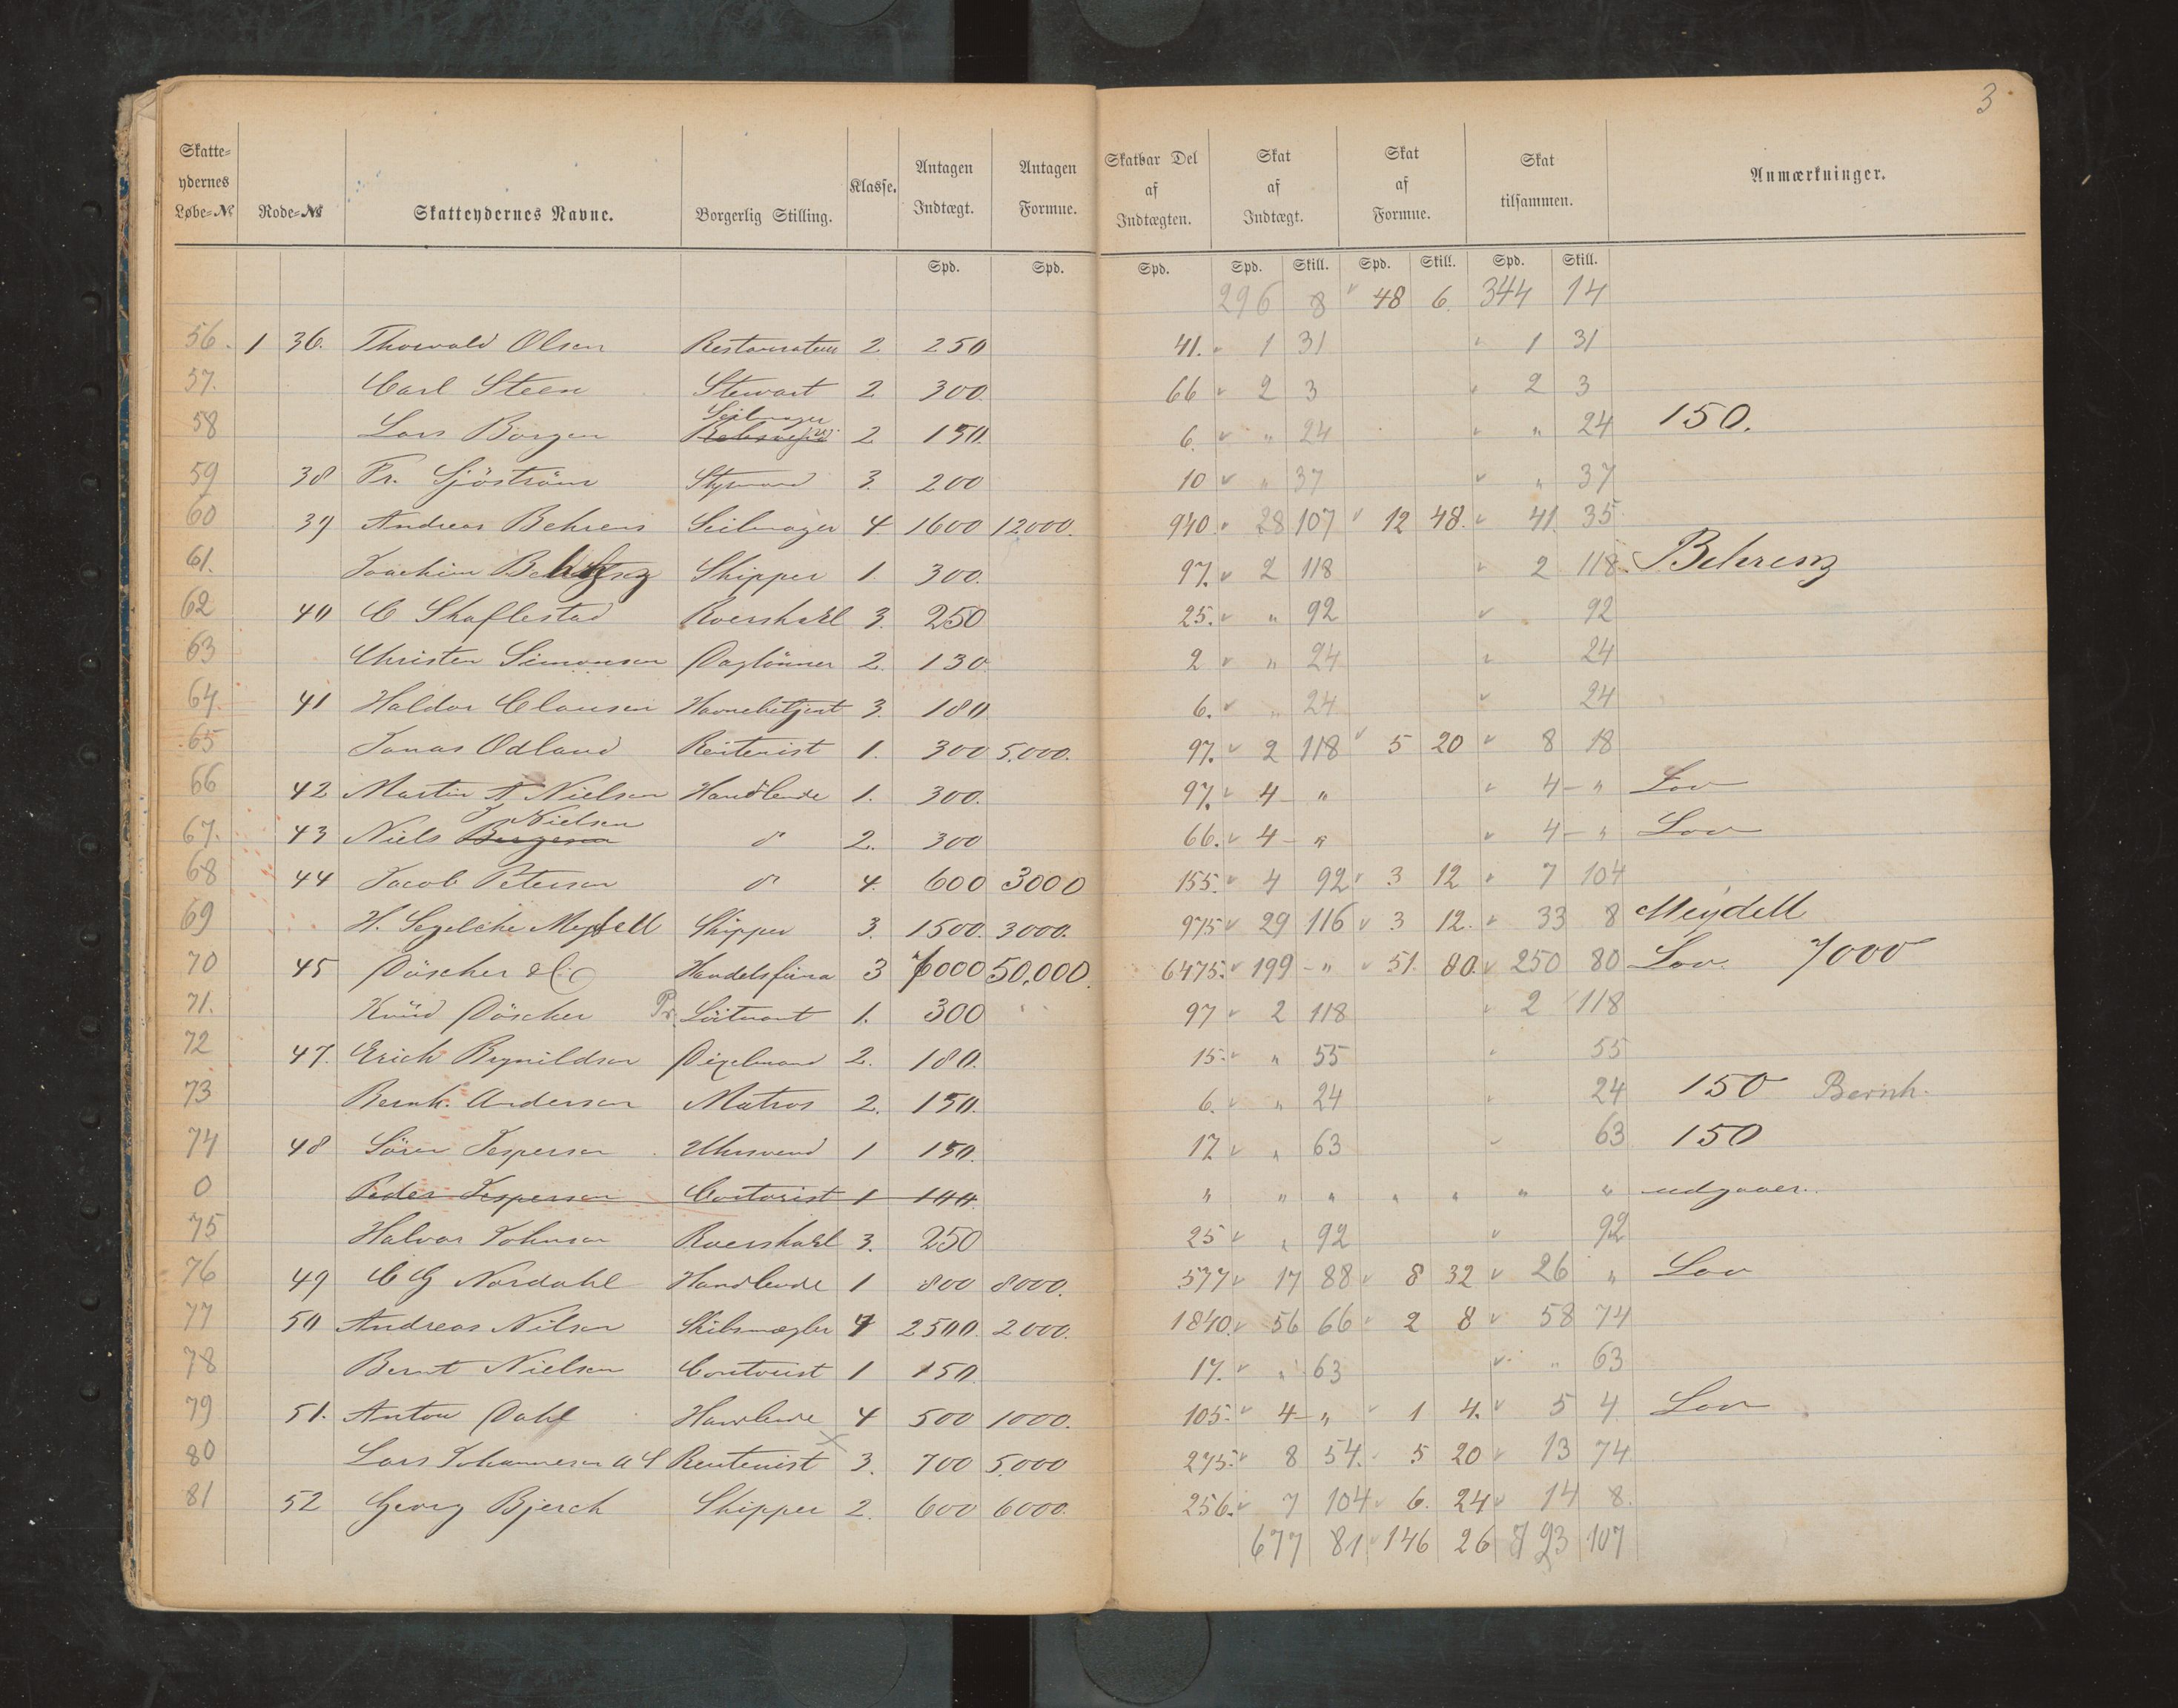 3
Skatte- ydernes Løbe-№ Rode-№ Skatteydernes Navne. Borgerlig Stilling. Klasse. Antagen Indtægt. Antagen Formue. Skatbar Del af Indtægten. Skat af Indtægt. Skat af Formue. Skat tilsammen. Anmærkninger.
Spd. Spd. Spd. Spd. Skill. Spd. Skill. Spd. Skill.
296 8 48 6. 344 14
56. 1 36. Thorvald Olsen Restaurateur 2 250 41. 1 31 1 31
57. Carl Steen Stewart 2 300. 66 2 3 2 3
58 Lars Borgen Seilmager 2 150. 6. " 24 " 24 150.
59 38 Fr. Sjöström Styrmand 3. 200 10 " 37 " 37
60 39 Andreas Behrens Seilmager 4 1600 12000. 940. 28 107 12 48. 41. 35
61. Joachim Skipper 1. 300. 97. 2 118 2 118. Behrenz
62 40 C Skaflestad Roerskarl 3. 250 25. " 92 92
63 Christen Simonsen Daglönner 2. 130. 2 " 24 24
64. 41 Haldor Clausen Havnebetjent 3. 180 6. " 24 24
65 Jonas Odland Rentenist 1. 300 5.000. 97. 2 118 5 20 8 18
66 42 Martin A Nielsen Handlende 1. 300. 97. 4 - " 4 - " Lov
67. 43 Niels J Nielsen do 2. 300 66. 4 - " 4 - " Lov
68 44 Jacob Petersen do 4. 600 3000 155. 4 92 3 12 7 104
69 H. Segelcke Meydell Skipper 3. 1500. 3000. 975 29 116 3 12. 33 8 Meydell
70 45 Döscher & Co Handelsfirma 3 7000 50.000. 6475. 199 - " 51. 80. 250 80 Lov. 7000
71. Knud Döscher Pr. Löitnant 1. 300 97 2 118 2 118
72 47. Erich Brynildsen Dixelmand 2. 180. 15. " 55 55
73 Bernh. Andersen Matros 2. 150. 6. " 24 24 150 Bernh.
74 48 Sören Jespersen Uhrsvend 1 150. 17 " 63 63 150
0 Peder Jespersen Contorist 1 144. " " " " " " " udgaaer.
75 Halvor Johnsen Roerskarl 3. 250 25 " 92 92
76 49 C G Nordahl Handlende 1 800 8000. 577 17 88 8 32 26 " Lov
77 50 Andreas Nilsen Skibsmægler 4 2500. 2000. 1840. 56 66 2 8 58 74
78 Bernt Nielsen Contorist 1 150. 17. " 63 " 63
79 51. Anton Dahl Handlende 4 500 1000. 105. 4 - " 1 4. 5 4 Lov
80 Lars Johannesen A S Rentenist 3. 700 5.000 275. 8 54. 5 20 13 74.
81 52 Georg Bjerck Skipper 2. 600 6000. 256. 7 104 6. 24 14 8.
677 81 146 26 793 107